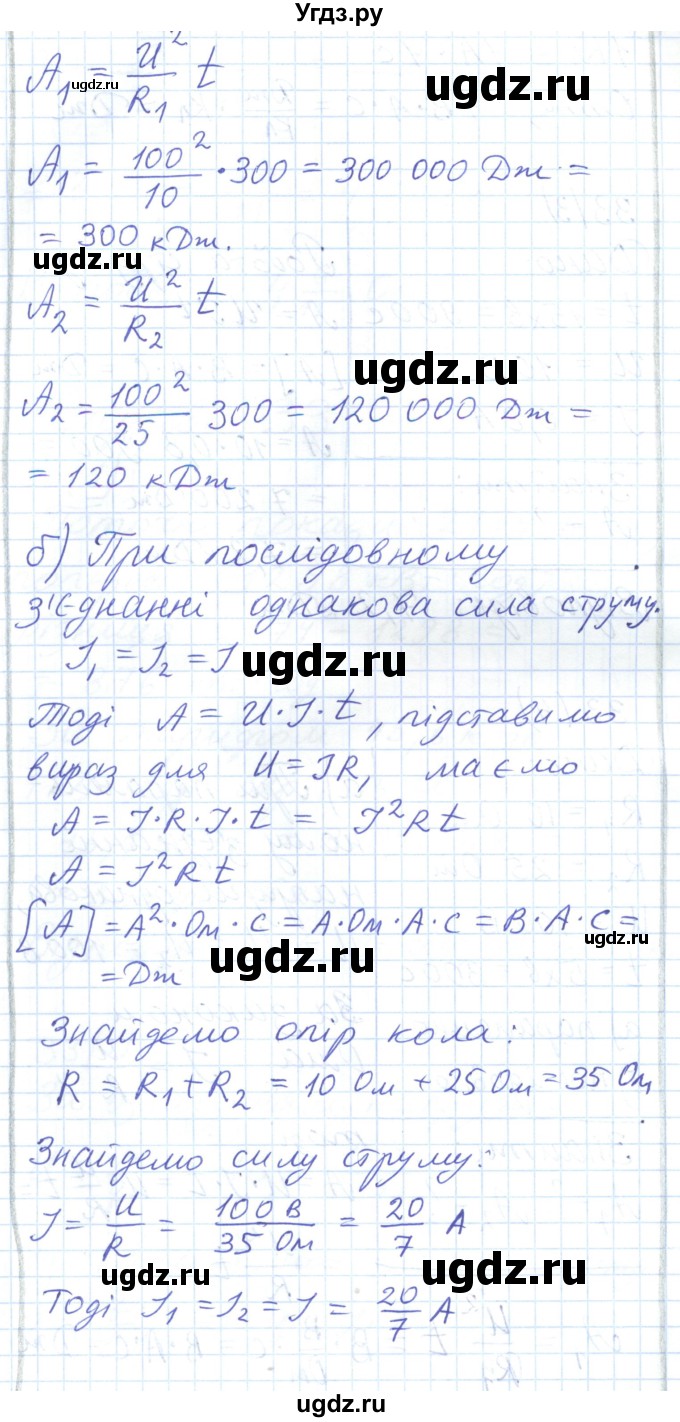 Угдз.ру
A₁ = U²/R₁ t
ugdz.ru
ugdz.ru
A₁ = 100²/10 · 300 = 300 000 Дж =
= 300 кДж.
ugdz.ru
A₂ = U²/R₂ t
ugdz.ru
A₂ = 100²/25 300 = 120 000 Дж =
= 120 кДж
б) При послідовному
з'єднанні однакова сила струму.
I₁ = I₂ = I
ugdz.ru
Тоді A = U·I·t, підставимо
вираз для U = IR, маємо
A = I·R·I·t = I²Rt
A = I²Rt
[A] = A²·Ом·с = А·Ом·А·с = В·А·с =
ugdz.ru
ugdz.ru
= Дж
Знайдемо опір кола:
R = R₁ + R₂ = 10 Ом + 25 Ом = 35 Ом
Знайдемо силу струму:
I = U/R = 100 В/35 Ом = 20/7 А
ugdz.ru
ugdz.ru
Тоді I₁ = I₂ = I = 20/7 А
ugdz.ru